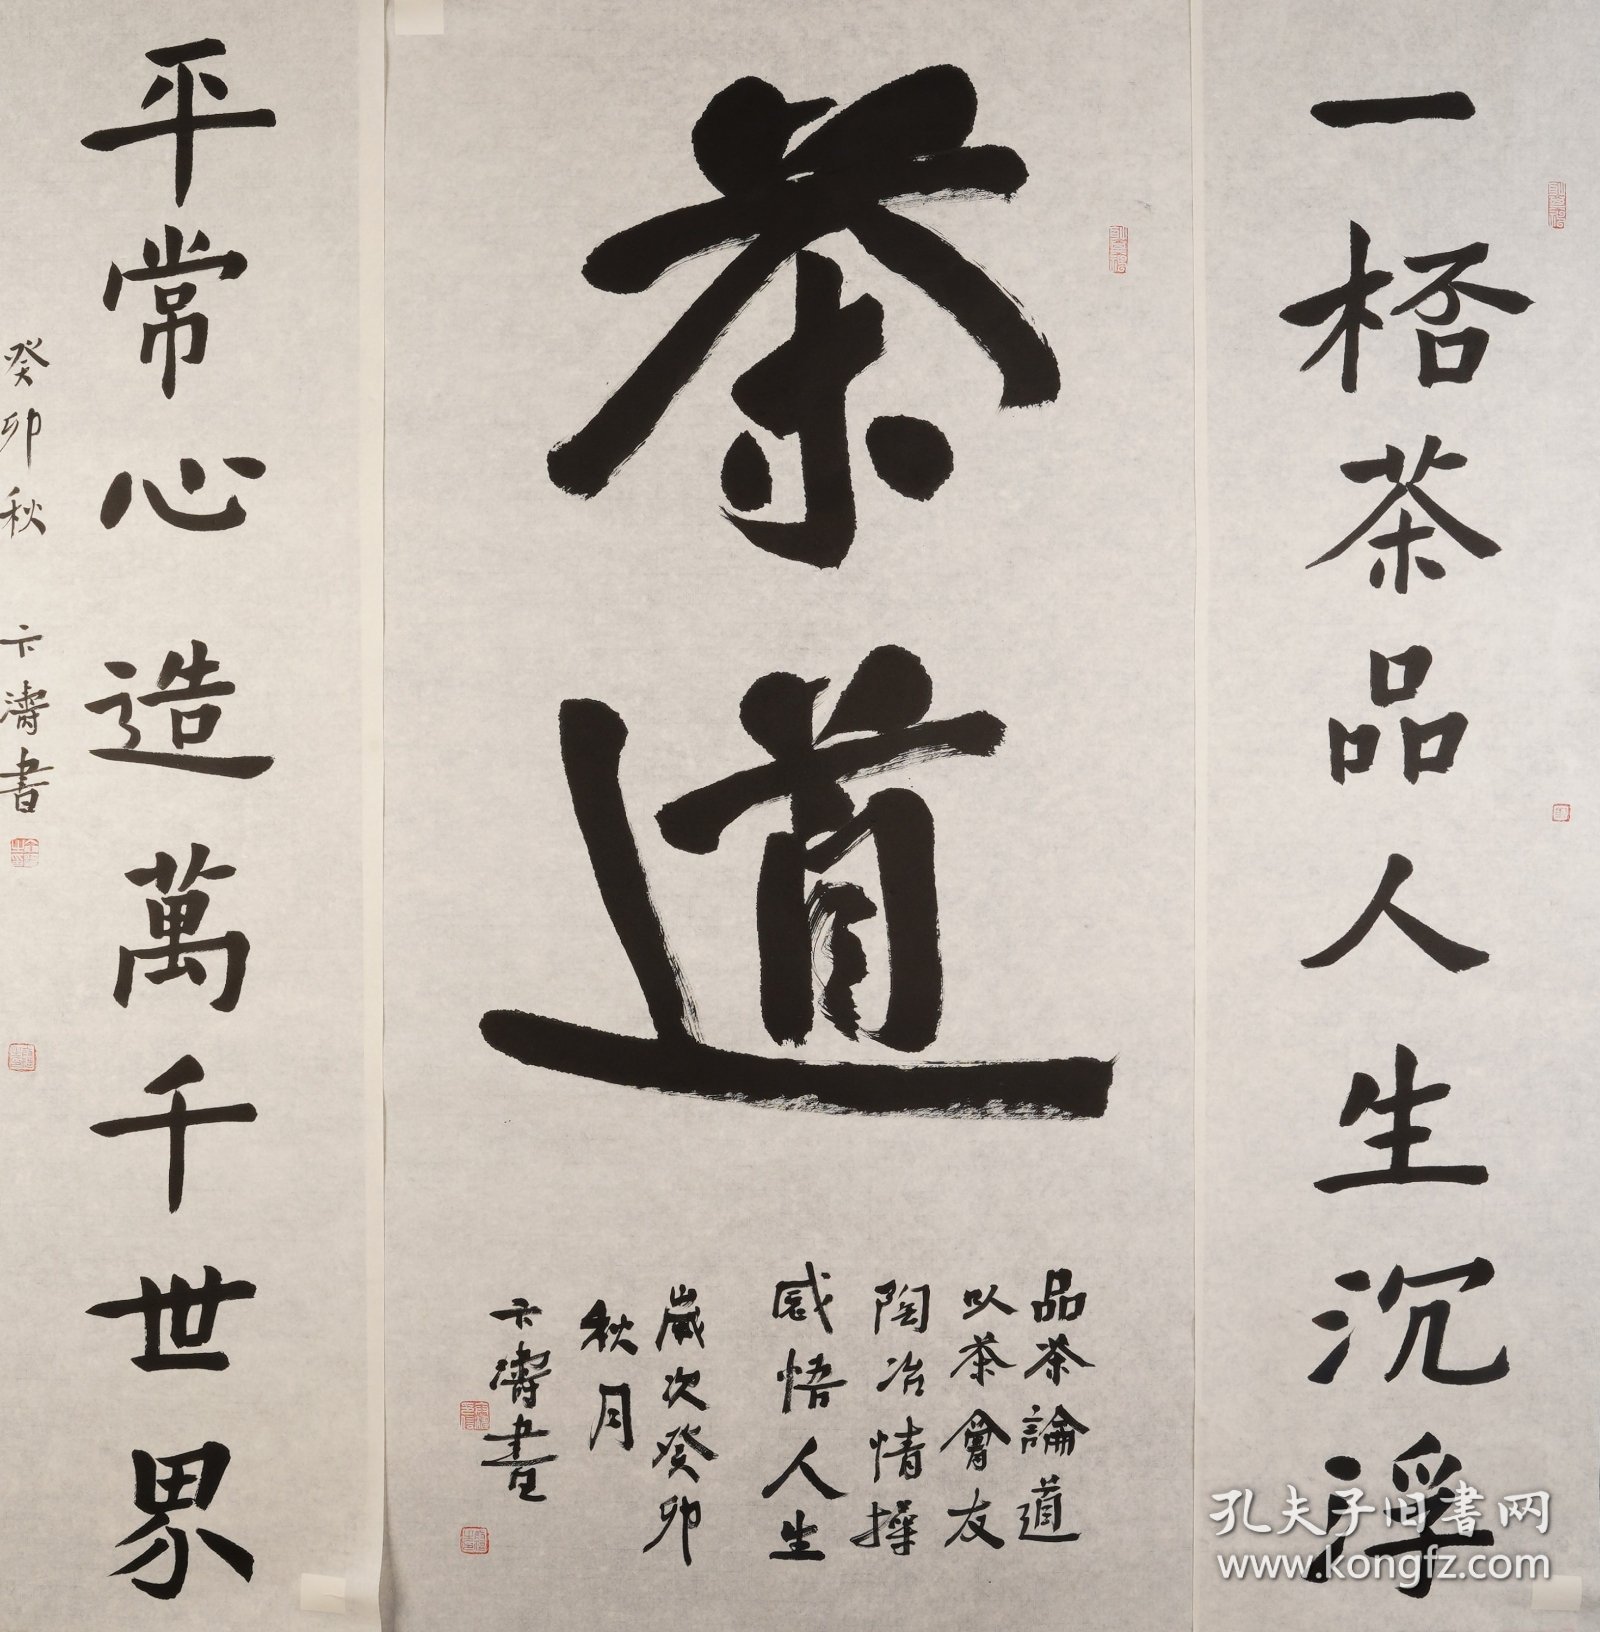 一桮茶品人生沉浮
茶道
品茶論道
以茶會友
陶冶情操
感悟人生
歲次癸卯
秋月
卞濤書
平常心造萬千世界
癸卯秋 卞濤書
孔夫子旧書网
www.kongfz.com